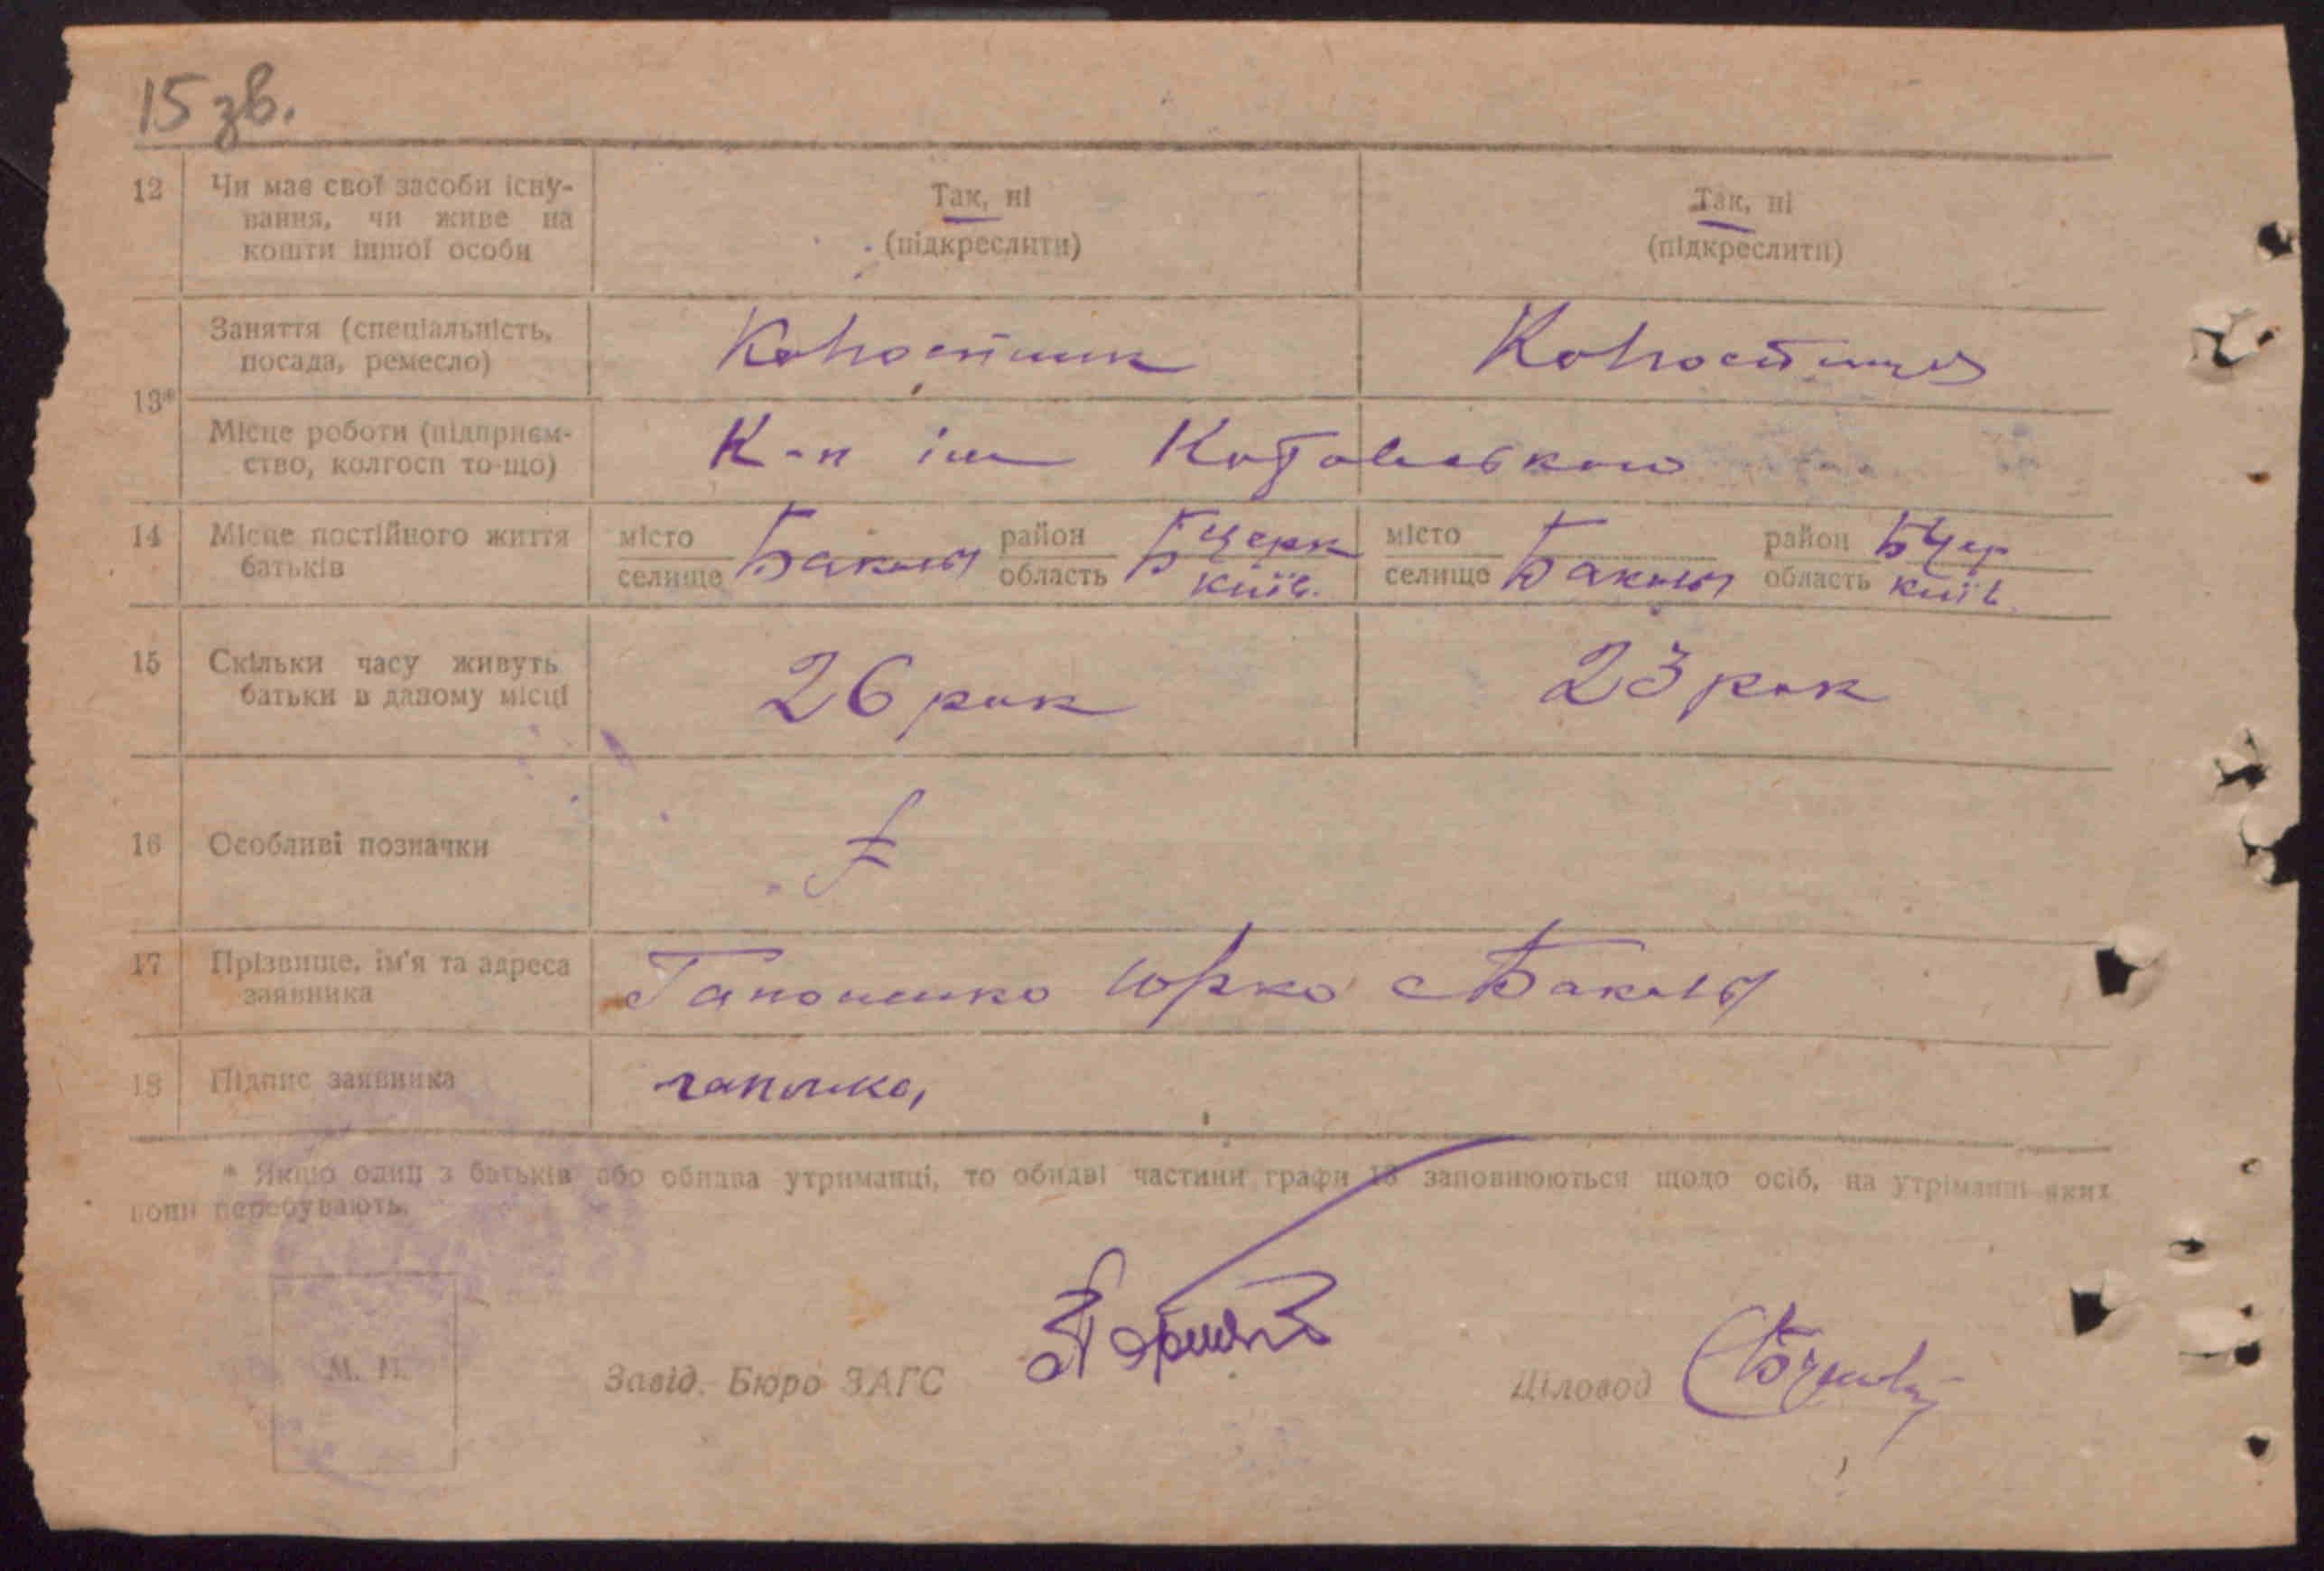 15 зв.
12 Чи має свої засоби існу-
вання, чи живе на
кошти іншої особи
Так, ні
(підкреслити)
Так, ні
(підкреслити)
13*
Заняття (спеціальність,
посада, ремесло)
Місце роботи (підприєм-
ство, колгосп то-що)
К-п ім Котовського
14 Місце постійного життя
батьків
місто
селище
район Б Церк
область Київ.
місто
селище
район Б Цер
область Київ
15 Скільки часу живуть
батьки в даному місці
26 рок
23 рок
16 Особливі позначки
17 Прізвище, ім'я та адреса
заявника
Гапоненко Юрко с
18 Підпис заявника
* Якщо один з батьків або обидва утриманці, то обидві частини графи 13 заповнюються щодо осіб, на утриманні яких
вони перебувають.
М. П.
Завід. Бюро ЗАГС
Діловод